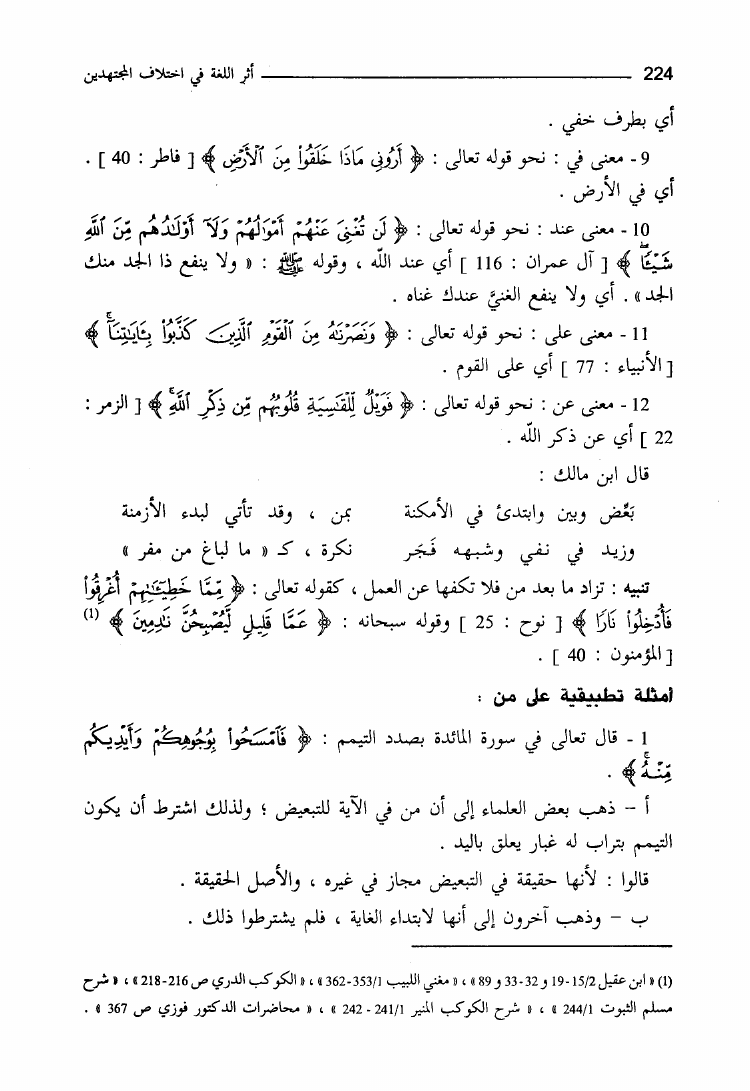 224 أثر اللغة في اختلاف المجتهدين
أي بطرف خفي .
9 - معنى في : نحو قوله تعالى : ﴿ أَرُونِي مَاذَا خَلَقُوا۟ مِنَ ٱلْأَرْضِ ﴾ [ فاطر : 40 ] .
أي في الأرض .
10 - معنى عند : نحو قوله تعالى : ﴿ لَن تُغْنِىَ عَنْهُمْ أَمْوَٰلُهُمْ وَلَآ أَوْلَـٰدُهُم مِّنَ ٱللَّهِ
شَيْـًٔا ۖ ﴾ [ آل عمران : 116 ] أي عند الله ، وقوله ﷺ : « ولا ينفع ذا الجد منك
الجد » . أي ولا ينفع الغنيَّ عندك غناه .
11 - معنى على : نحو قوله تعالى : ﴿ وَنَصَرْنَـٰهُ مِنَ ٱلْقَوْمِ ٱلَّذِينَ كَذَّبُوا۟ بِـَٔايَـٰتِنَآ ۚ ﴾
[ الأنبياء : 77 ] أي على القوم .
12 - معنى عن : نحو قوله تعالى : ﴿ فَوَيْلٌ لِّلْقَـٰسِيَةِ قُلُوبُهُم مِّن ذِكْرِ ٱللَّهِ ۚ ﴾ [ الزمر :
22 ] أي عن ذكر الله .
قال ابن مالك :
بَعِّض وبين وابتدئ في الأمكنة بمن ، وقد تأتي لبدء الأزمنة
وزيد في نفي وشبهه فَجَر نكرة ، كـ « ما لباغ من مفر »
تنبيه : تزاد ما بعد من فلا تكفها عن العمل ، كقوله تعالى : ﴿ مِّمَّا خَطِيٓـَٔـٰتِهِمْ أُغْرِقُوا۟
فَأُدْخِلُوا۟ نَارًا ﴾ [ نوح : 25 ] وقوله سبحانه : ﴿ عَمَّا قَلِيلٍ لَّيُصْبِحُنَّ نَـٰدِمِينَ ﴾ (1)
[ المؤمنون : 40 ] .
أمثلة تطبيقية على من :
1 - قال تعالى في سورة المائدة بصدد التيمم : ﴿ فَٱمْسَحُوا۟ بِوُجُوهِكُمْ وَأَيْدِيكُم
مِّنْهُ ۚ ﴾ .
أ - ذهب بعض العلماء إلى أن من في الآية للتبعيض ؛ ولذلك اشترط أن يكون
التيمم بتراب له غبار يعلق باليد .
قالوا : لأنها حقيقة في التبعيض مجاز في غيره ، والأصل الحقيقة .
ب - وذهب آخرون إلى أنها لابتداء الغاية ، فلم يشترطوا ذلك .
(1) « ابن عقيل 15/2-19 و 32-33 و 89 » ، « مغني اللبيب 353/1-362 » ، « الكوكب الدري ص 216-218 » ، « شرح
مسلم الثبوت 244/1 » ، « شرح الكوكب المنير 241/1 - 242 » ، « محاضرات الدكتور فوزي ص 367 » .